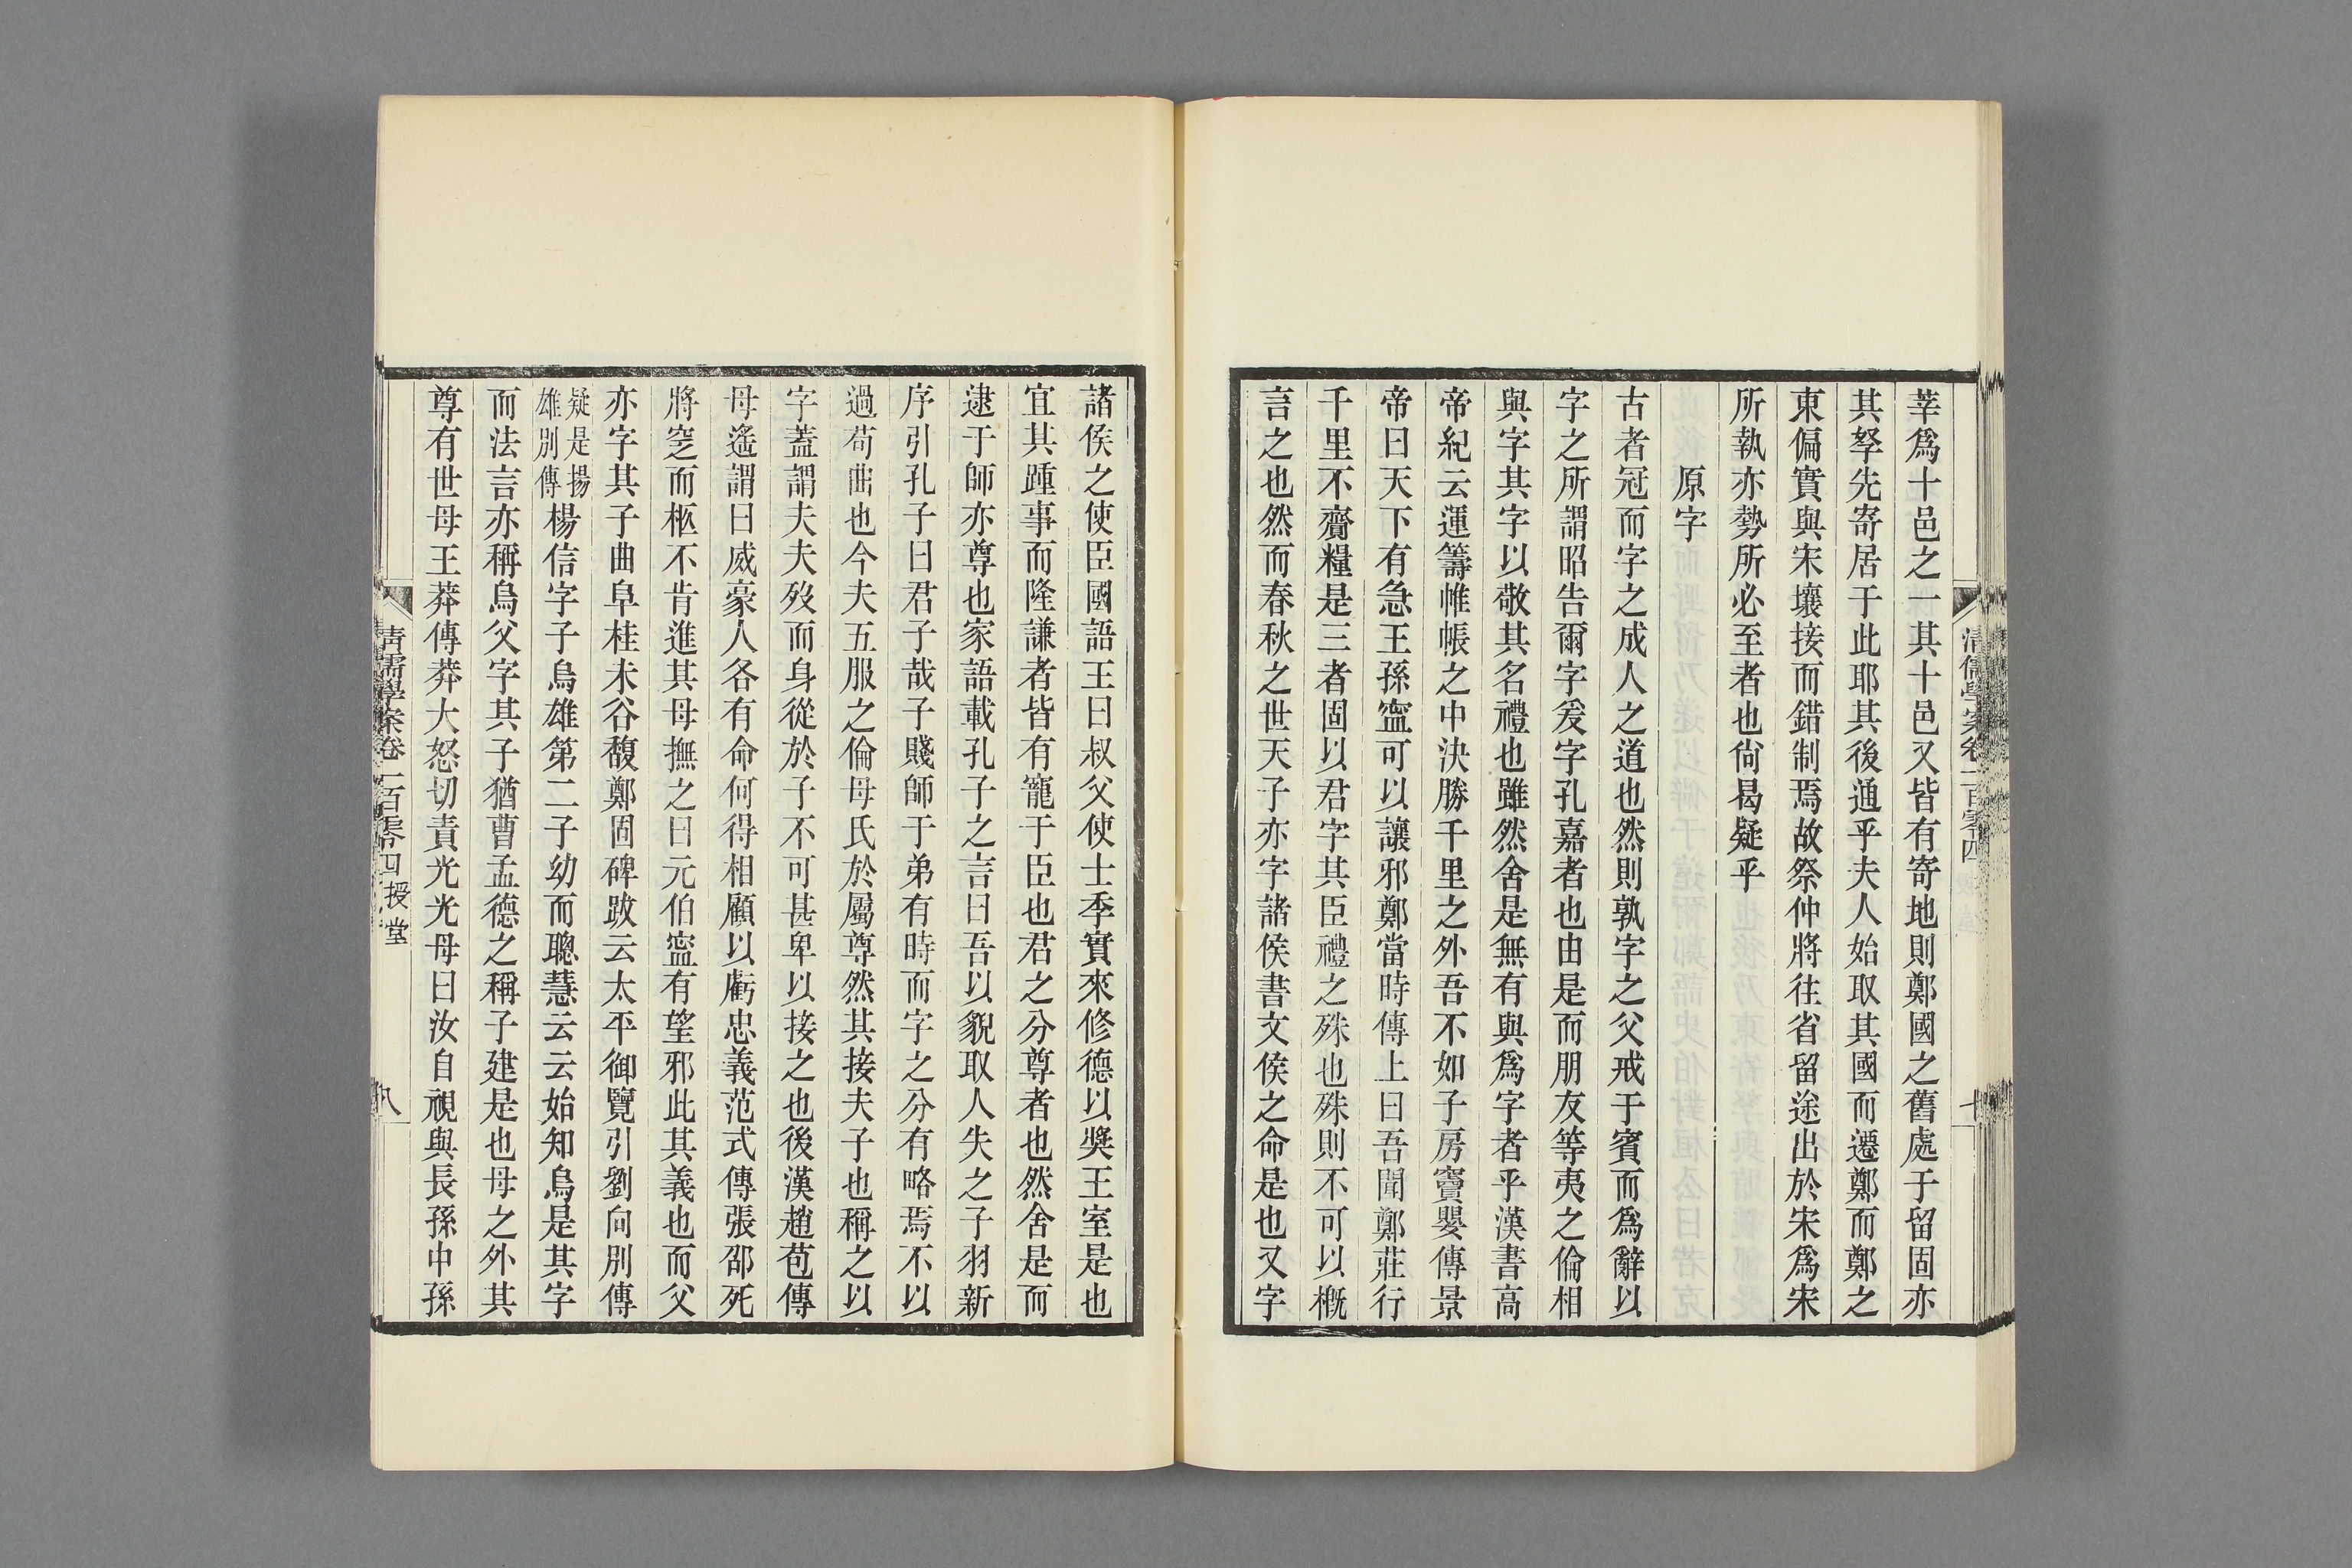 莘爲十邑之一其十邑又皆有寄地則鄭國之舊處于留固亦
其孥先寄居于此耶其後通乎夫人始取其國而遷鄭而鄭之
東偏實與宋壤接而錯制焉故祭仲將往省留途出於宋爲宋
所執亦勢所必至者也尙曷疑乎
原字
古者冠而字之成人之道也然則孰字之父戒于賓而爲辭以
字之所謂昭告爾字爰字孔嘉者也由是而朋友等夷之倫相
與字其字以敬其名禮也雖然舍是無有與爲字者乎漢書高
帝紀云運籌帷帳之中決勝千里之外吾不如子房竇嬰傳景
帝曰天下有急王孫寍可以讓邪鄭當時傳上曰吾聞鄭莊行
千里不齎糧是三者固以君字其臣禮之殊也殊則不可以槪
言之也然而春秋之世天子亦字諸侯書文侯之命是也又字
諸侯之使臣國語王曰叔父使士季實來修德以奬王室是也
宜其踵事而隆謙者皆有寵于臣也君之分尊者也然舍是而
逮于師亦尊也家語載孔子之言曰吾以貌取人失之子羽新
序引孔子曰君子哉子賤師于弟有時而字之分有略焉不以
過苟曲也今夫五服之倫母氏於屬尊然其接夫子也稱之以
字蓋謂夫夫歿而身從於子不可甚卑以接之也後漢趙苞傳
母遙謂曰威豪人各有命何得相顧以虧忠義范式傳張邵死
將窆而柩不肯進其母撫之曰元伯寍有望邪此其義也而父
亦字其子曲阜桂未谷馥鄭固碑跋云太平御覽引劉向別傳
疑是揚
雄別傳
楊信字子烏雄第二子幼而聰慧云云始知烏是其字
而法言亦稱烏父字其子猶曹孟德之稱子建是也母之外其
尊有世母王莽傳莽大怒切責光光母曰汝自視與長孫中孫
清儒學案卷二百零四 授堂
八